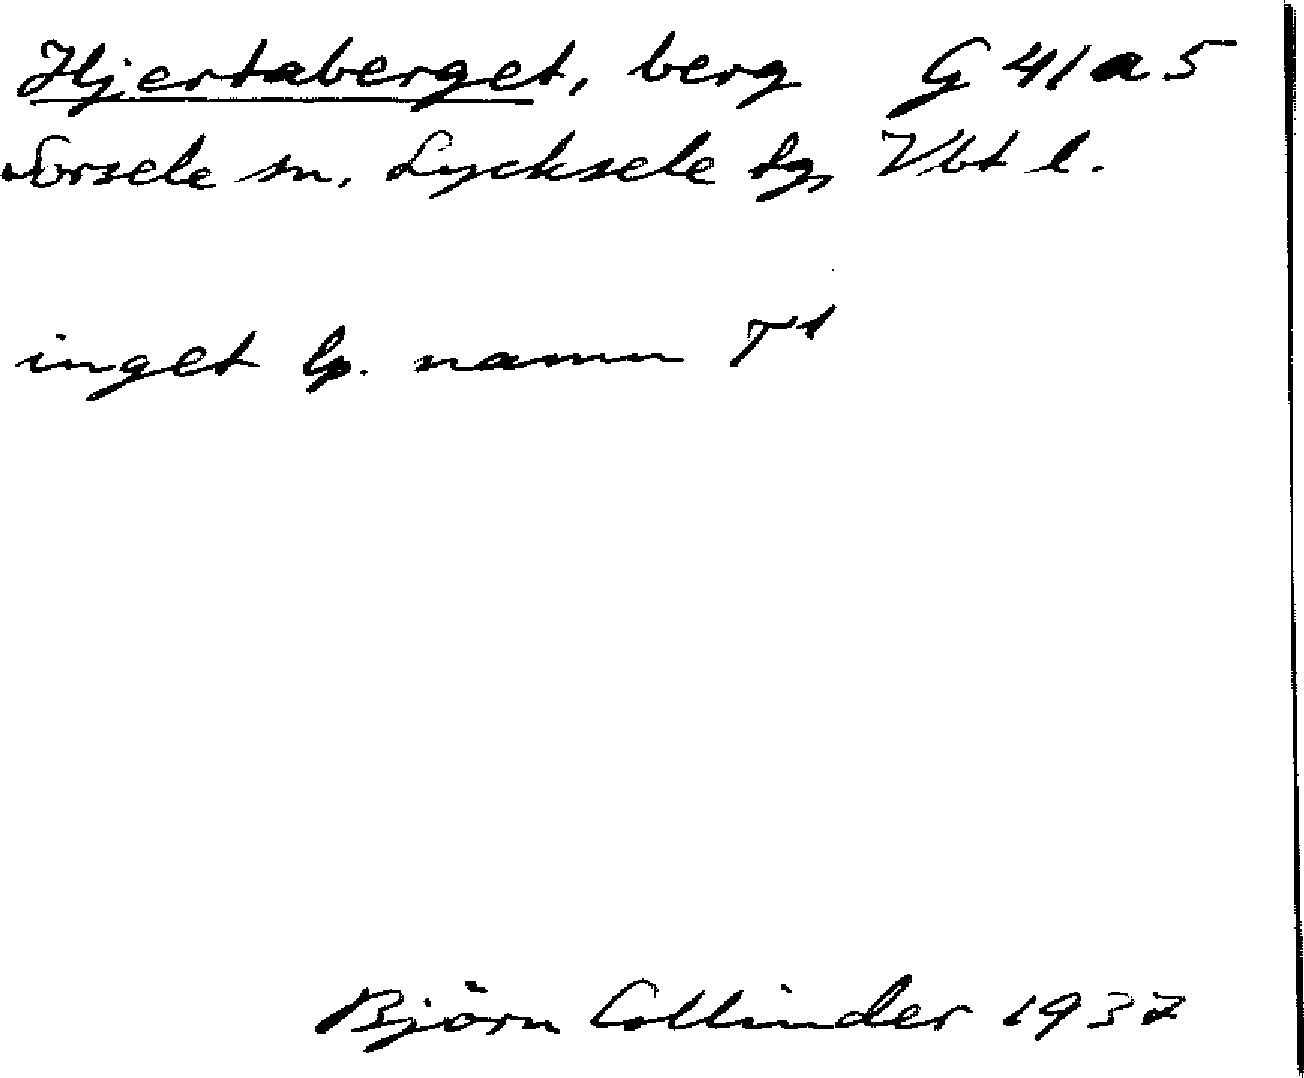 Hjertaberget, berg G 41 a 5
Sorsele sn. Lycksele lg, Vbt l.
inget lp. namn T¹
Björn Collinder 1937